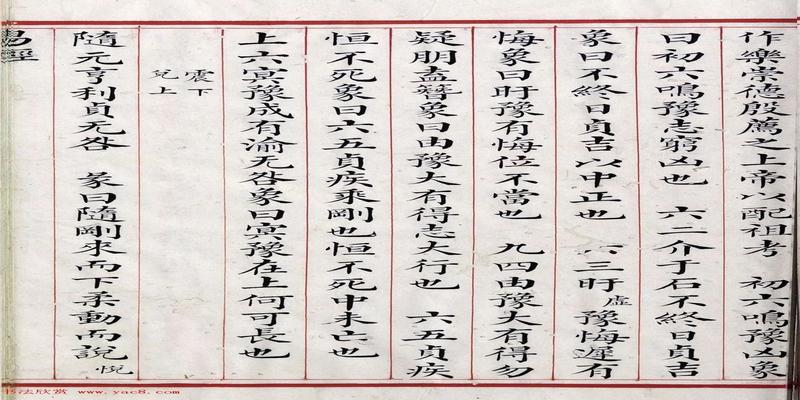 作樂崇德殷薦之上帝以配祖考 初六鳴豫凶象
曰初六鳴豫志窮凶也 六二介于石不終日貞吉
象曰不終日貞吉以中正也 六三盱虛豫悔遲有
悔象曰盱豫有悔位不當也 九四由豫大有得勿
疑朋盍簪象曰由豫大有得志大行也 六五貞疾
恒不死象曰六五貞疾乘剛也恒不死中未亡也
上六冥豫成有渝无咎象曰冥豫在上何可長也
震下
兌上
隨元亨利貞无咎 彖曰隨剛來而下柔動而說悅
易經
书法欣赏 www.yac8.com